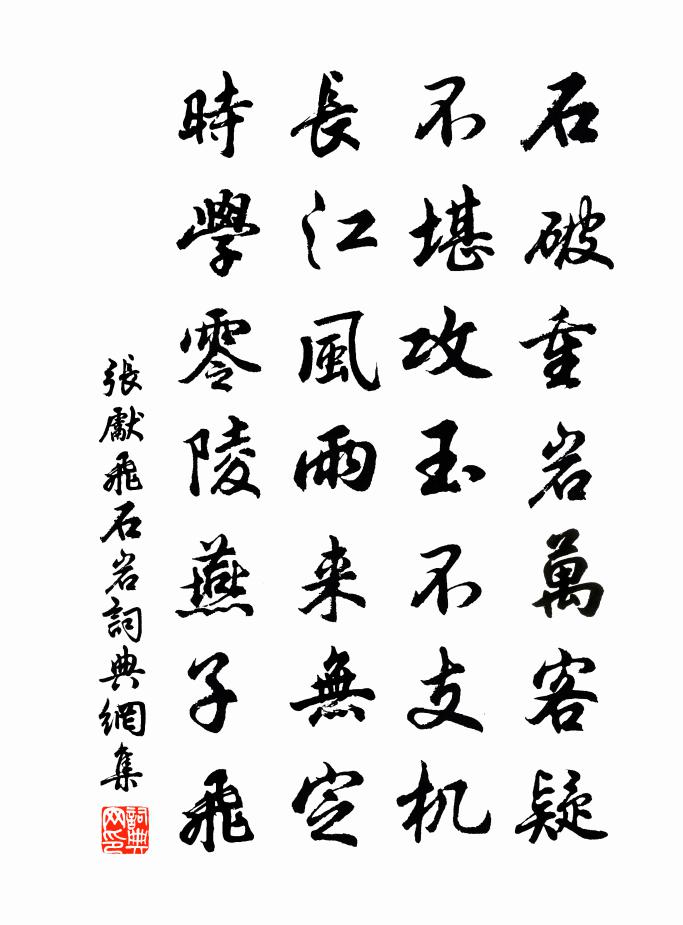 石破重岩萬客疑
不堪攻玉不支机
長江風雨来無定
時學零陵燕子飛
張獻飛石岩詞典網集
詞典网印